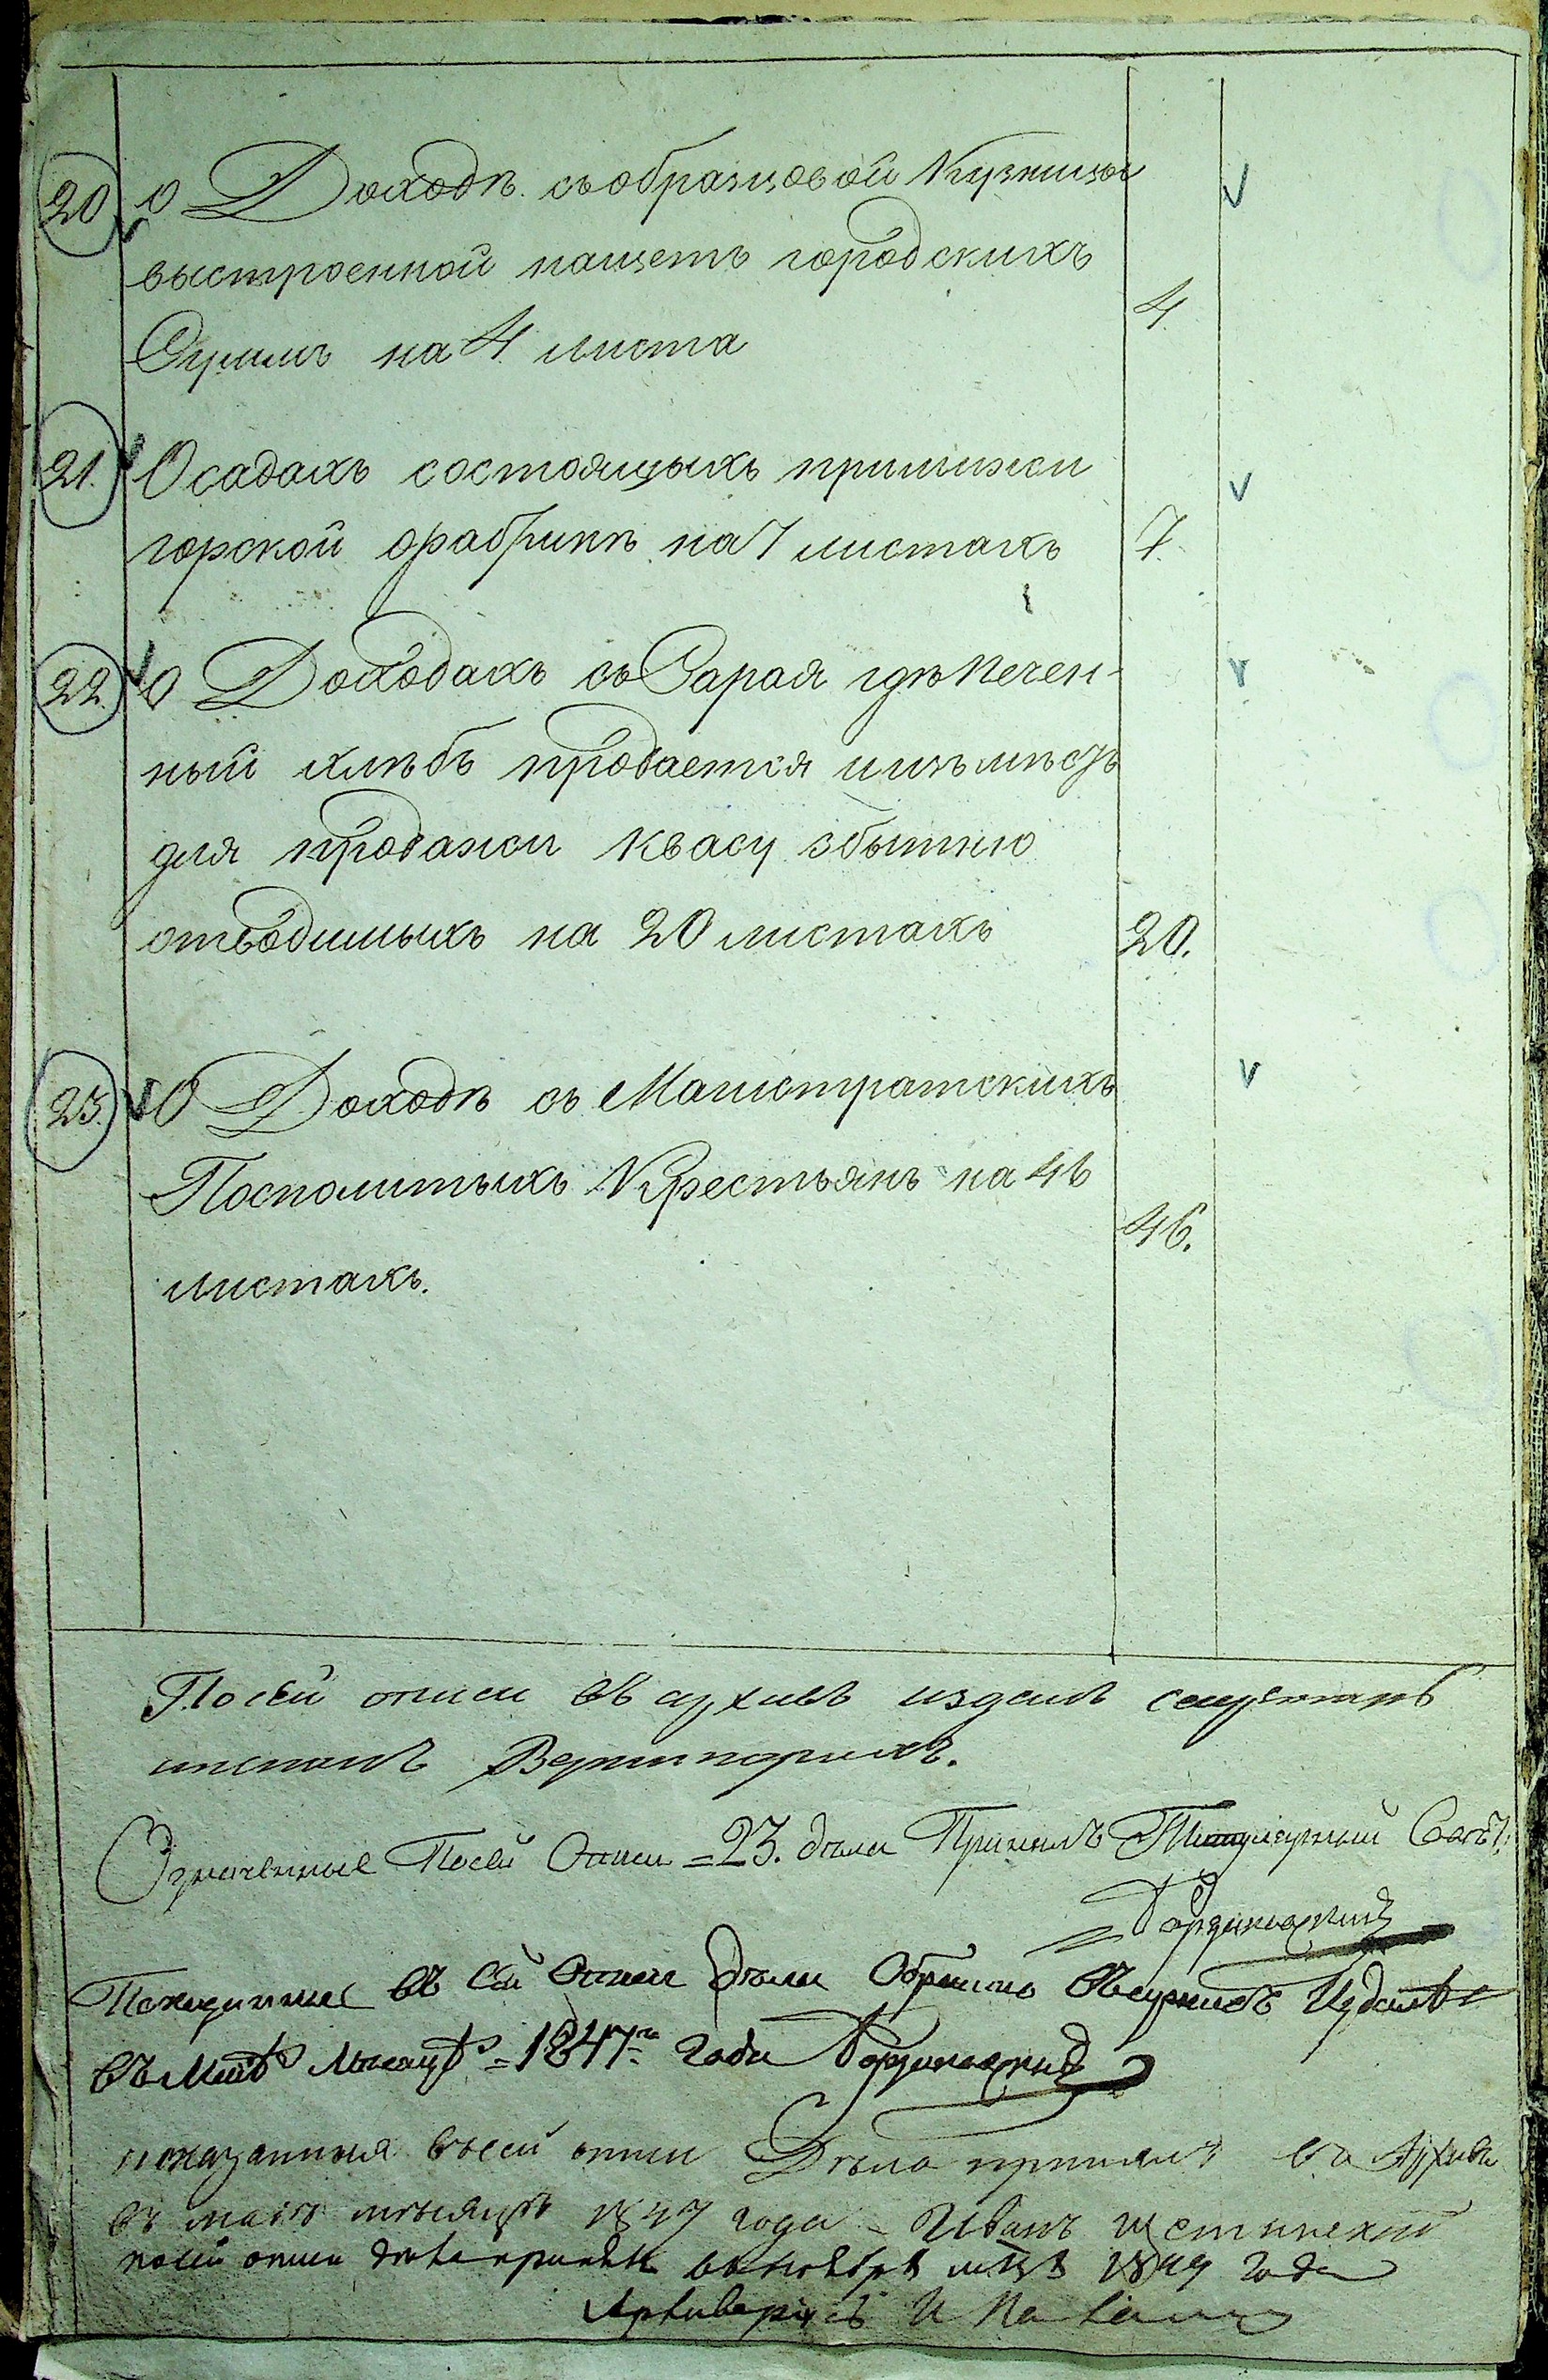 20 О Доходѣ съ образцовой Кузницы
выстроенной нащетъ городскихъ
Сумъ на 4 листа 4.
21. О садахъ состоящихъ при межи
горской фабрикѣ на 7 листахъ 7.
22. О Доходахъ съ Сарая гдѣ печен-
ный хлѣбъ продается и изъ мѣстъ
для продажи квасу збитню
отводимыхъ на 20 листахъ 20.
23. О Доходѣ съ Магистратскихъ
Посполитыхъ Крестьянъ на 46
листахъ. 46.
По сей описи въ архивъ сдалъ секретарь

Означенные По сей Описи =23. дѣла Принялъ Титулярный Совѣт:

въ сей Описи дѣла Обратно въ архивъ
въ Маѣ Мѣсяцѣ = 1847го года
показанныя въ сей описи Дѣла принялъ въ Архивъ
въ маіѣ мѣсяцѣ 1847 года – Иванъ
по сей описи дѣла принялъ въ ноябрѣ мцѣ 1849 года
Архиваріусъ И